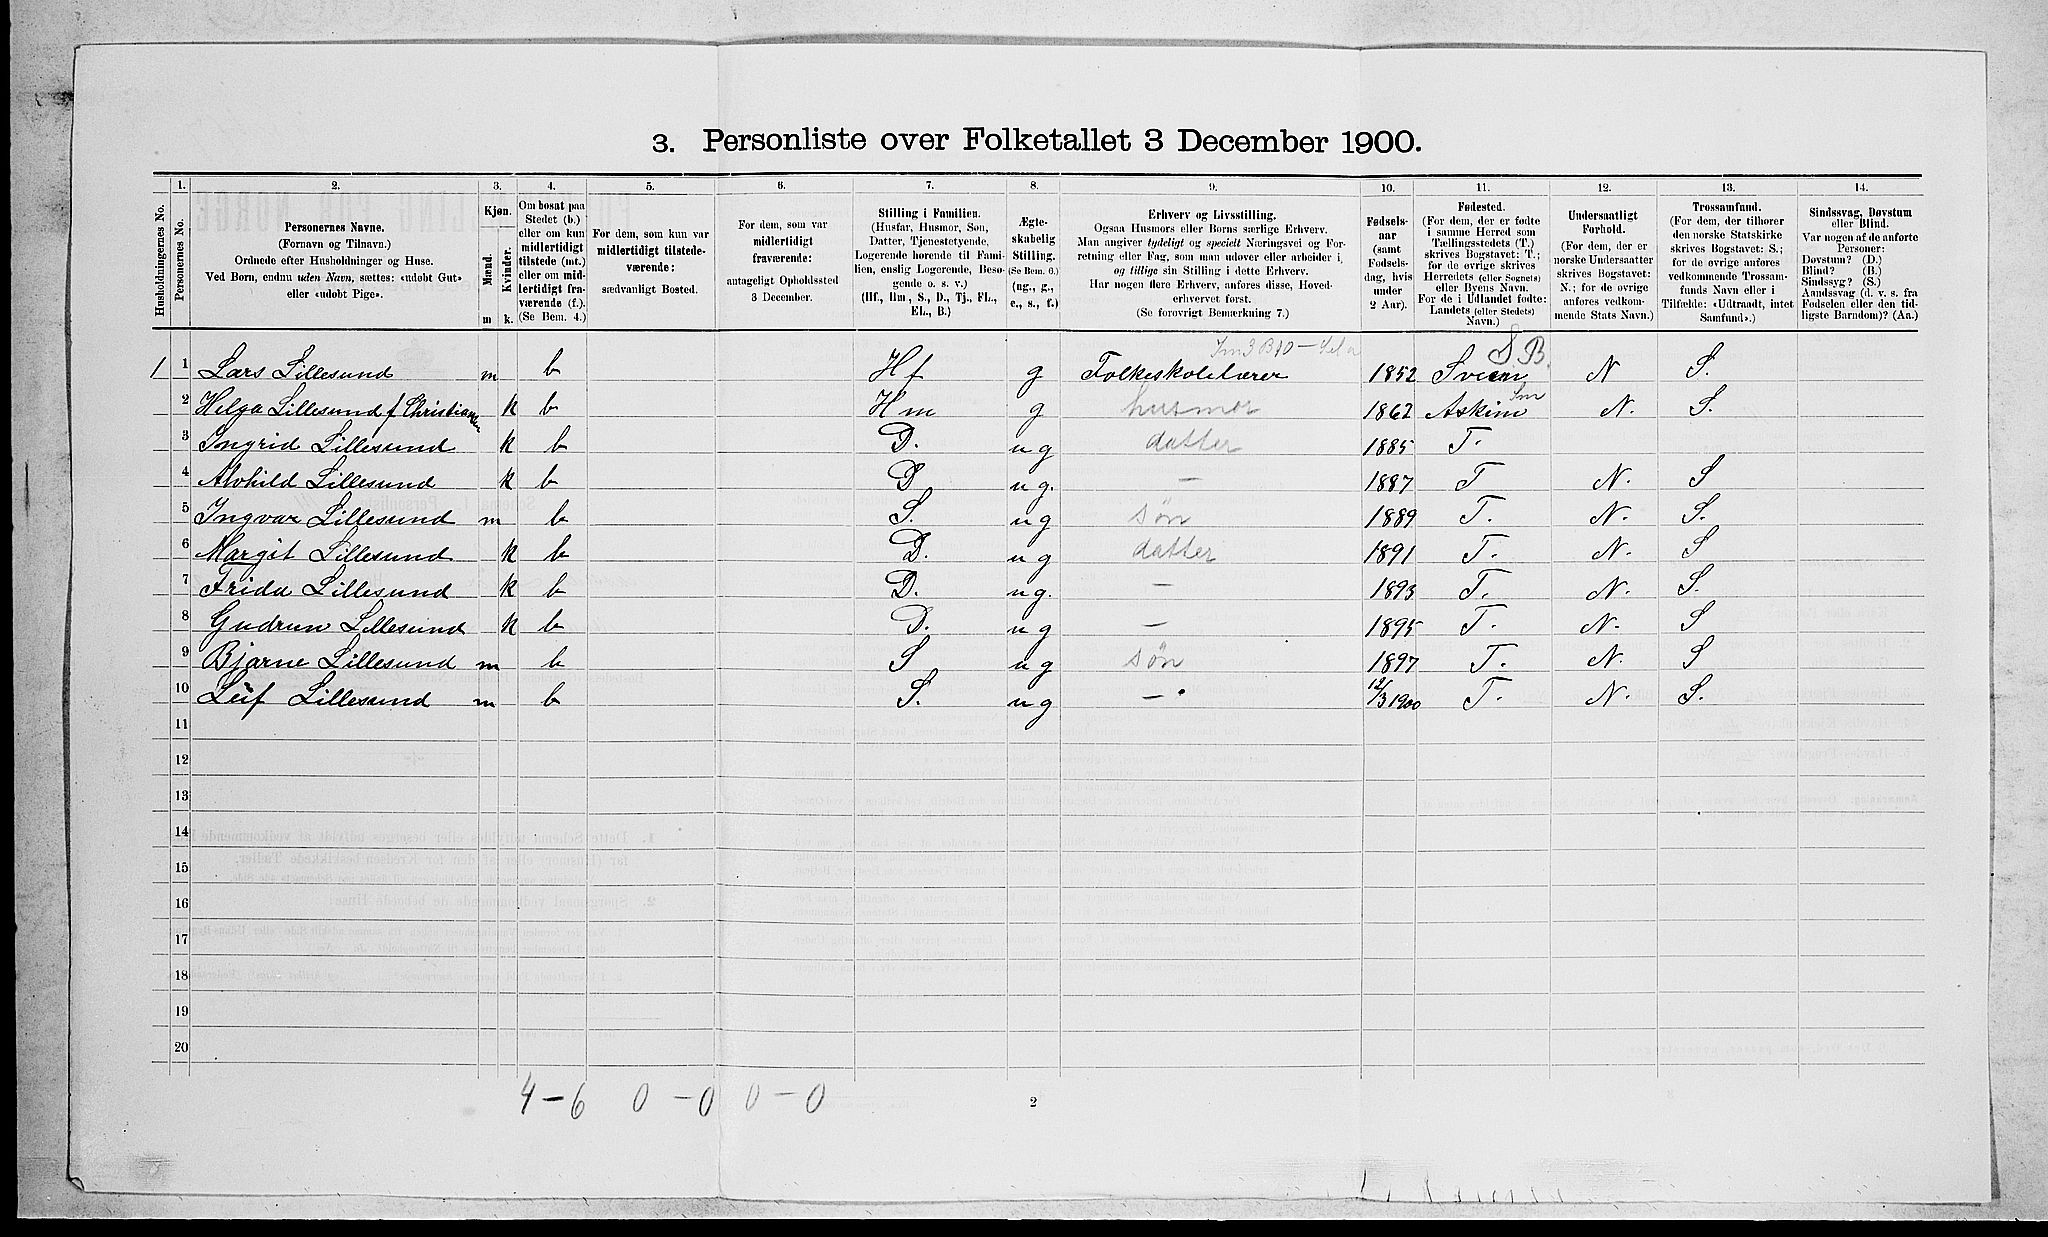 3. Personliste over Folketallet 3 December 1900.
1. 2. 3. 4. 5. 6. 7. 8. 9. 10. 11. 12. 13. 14.
Husholdningernes No.
Personernes No.
Personernes Navne.
(Fornavn og Tilnavn.)
Ordnede efter Husholdninger og Huse.
Ved Børn, endnu uden Navn, sættes: «udøbt Gut»
eller «udøbt Pige».
Kjøn.
Mænd.
Kvinder.
m k.
Om bosat paa
Stedet (b.)
eller om kun
midlertidigt
tilstede (mt.)
eller om mid-
lertidigt fra-
værende (f.).
(Se Bem. 4.)
For dem, som kun var
midlertidigt tilstede-
værende:
sædvanligt Bosted.
For dem, som var
midlertidigt
fraværende:
antageligt Opholdssted
3 December.
Stilling i Familien.
(Husfar, Husmor, Søn,
Datter, Tjenestetyende,
Logerende hørende til Fami-
lien, enslig Logerende, Besø-
gende o. s. v.)
(Hf., Hm., S., D., Tj., FL.,
EL., B.)
Ægte-
skabelig
Stilling.
(Se Bem. 6.)
(ug., g.,
e., s., f.)
Erhverv og Livsstilling.
Ogsaa Husmors eller Børns særlige Erhverv.
Man angiver tydeligt og specielt Næringsvei og For-
retning eller Fag, som man udøver eller arbeider i,
og tillige sin Stilling i dette Erhverv.
Har nogen flere Erhverv, anføres disse, Hoved-
erhvervet først.
(Se forøvrigt Bemærkning 7.)
Fødsels-
aar
(samt
Fødsels-
dag, hvis
under
2 Aar).
Fødested.
(For dem, der er fødte
i samme Herred som
Tællingsstedets (T.)
skrives Bogstavet: T.;
for de øvrige skrives
Herredets (eller Sognets)
eller Byens Navn.
For de i Udlandet fødte:
Landets (eller Stedets)
Navn.)
Undersaatligt
Forhold.
(For dem, der er
norske Undersaatter
skrives Bogstavet:
N.; for de øvrige
anføres vedkom-
mende Stats Navn.)
Trossamfund.
(For dem, der tilhører
den norske Statskirke
skrives Bogstavet: S.;
for de øvrige anføres
vedkommende Trossam-
funds Navn eller i
Tilfælde: «Udtraadt, intet
Samfund».)
Sindssvag, Døvstum
eller Blind.
Var nogen af de anførte
Personer:
Døvstum? (D.)
Blind? (B.)
Sindssyg? (S.)
Aandssvag (d. v. s. fra
Fødselen eller den tid-
ligste Barndom)? (Aa.)
S B
1 1 Lars Lillesund m b Hf g Folkeskolelærer 1852 Sveen N S.
2 Helga Lillesund f Christiansen k b Hm g husmor 1862 Askim Sm N. S.
3 Ingrid Lillesund k b D. ug datter 1885 T.
4 Alvhild Lillesund k b D ug. — 1887 T N. S
5 Ingvar Lillesund m b S. ug søn 1889 T. N. S.
6 Margit Lillesund k b D. ug datter 1891 T. N. S
7 Frida Lillesund k b D. ug. — 1893 T. N. S.
8 Gudrun Lillesund k b D. ug — 1895 T. N. S
9 Bjarne Lillesund m b S ug søn 1897 T. N. S
10 Leif Lillesund m b S. ug — 12/3 1900 T. N. S.
11
12
13
14
15
16
17
18
19
20
4 – 6 0 – 0 0 – 0
2